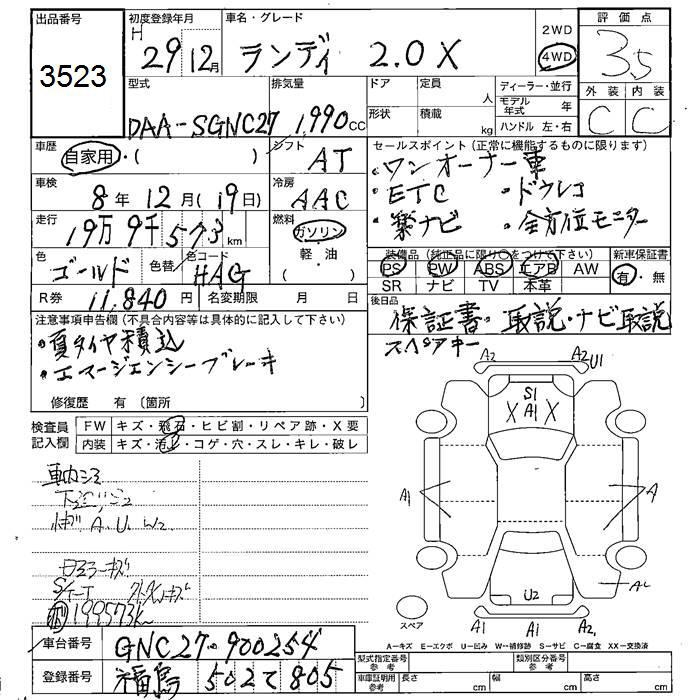 出品番号
3523
初度登録年月
H
29年12月
車名・グレード
ランディ 2.0X
2WD
4WD
評価点
3.5
外装 内装
C C
型式
DAA-SGNC27
排気量
1,990cc
ドア 定員
人
形状 積載
kg
ディーラー・並行
モデル年式 年
ハンドル 左・右
車歴
自家用・( )
シフト
AT
車検
8年12月(19日)
冷房
AAC
走行
19万9千573km
燃料
ガソリン
軽・油
( )
色
ゴールド
色替
色コード
HAG
R券 11,840円
名変期限 月 日
セールスポイント(正常に機能するものに限ります)
・ワンオーナー車
・ETC ・ドラレコ
・楽ナビ ・全方位モニター
装備品(純正品に限り○をつけて下さい)
PS PW ABS エアB AW
SR ナビ TV 本革
新車保証書
有・無
後日品
保証書・取説・ナビ取説
スペアキー
注意事項申告欄(不具合内容等は具体的に記入して下さい)
・夏タイヤ積込
・エマージェンシーブレーキ
修復歴 有(箇所 )
検査員記入欄
FW キズ・飛石・ヒビ割・リペア跡・X要
内装 キズ・汚れ・コゲ・穴・スレ・キレ・破レ
車内シミ
A.U.W2
199573k
A2 A2 U1
S1
X A1 X
A1 A
U2
A2
A1 A1
スペア
A=キズ E=エクボ U=凹み W=補修跡 S=サビ C=腐食 XX=交換済
車台番号 GNC27-900254
登録番号 福島 502 て 805
型式指定番号
参考
類別区分番号
参考
車庫証明用
参考
長さ cm 幅 cm 高さ cm